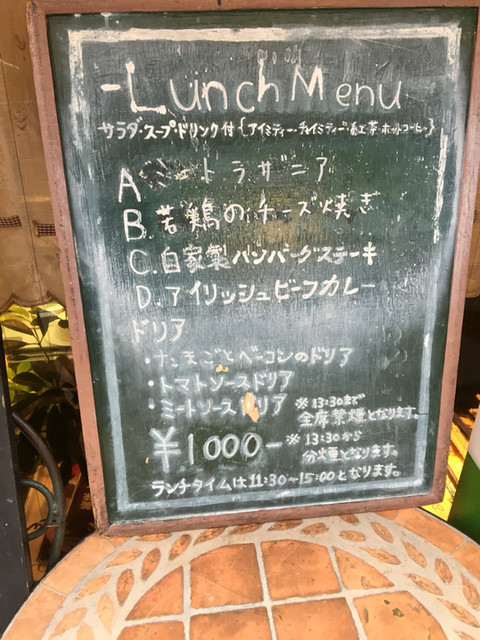 -Lunch Menu
サラダ・スープ・ドリンク付
A ートラザニア
B. 若鶏のチーズ焼き
C. 自家製ハンバーグステーキ
D. アイリッシュビーフカレー
ドリア
たまごとベーコンのドリア
・トマトソースドリア
・ミートソースドリア
※13:30まで
全席禁煙となります。
¥1000-
※13:30から
分煙となります。
ランチタイムは11:30〜15:00となります。